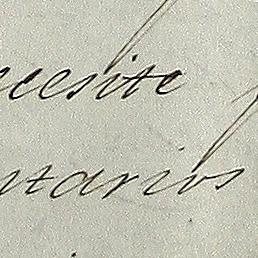 ecesite
ntarios